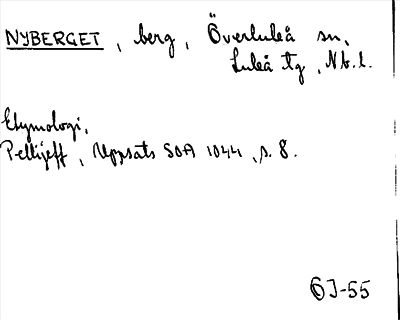 NYBERGET, berg, Överluleå sn,
Luleå tg, Nb. l.
Etymologi,
Pellijeff, Uppsats SOA 1044, s. 8.
6J-55